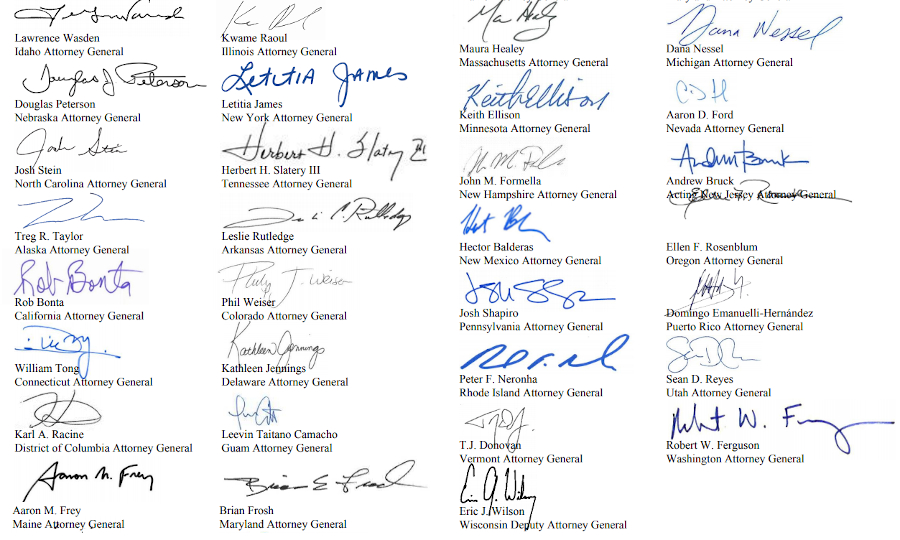 Lawrence Wasden
Idaho Attorney General
Kwame Raoul
Illinois Attorney General
Maura Healey
Massachusetts Attorney General
Dana Nessel
Dana Nessel
Michigan Attorney General
Douglas J Peterson
Douglas Peterson
Nebraska Attorney General
Letitia James
Letitia James
New York Attorney General
Keith Ellison
Keith Ellison
Minnesota Attorney General
Aaron D. Ford
Nevada Attorney General
Josh Stein
Josh Stein
North Carolina Attorney General
Herbert H. Slatery III
Herbert H. Slatery III
Tennessee Attorney General
John M. Formella
New Hampshire Attorney General
Andrew Bruck
Acting New Jersey Attorney General
Treg R. Taylor
Alaska Attorney General
Leslie Rutledge
Arkansas Attorney General
Hector Balderas
New Mexico Attorney General
Ellen F. Rosenblum
Oregon Attorney General
Rob Bonta
Rob Bonta
California Attorney General
Philip J. Weiser
Phil Weiser
Colorado Attorney General
Josh Shapiro
Pennsylvania Attorney General
Domingo Emanuelli-Hernández
Puerto Rico Attorney General
William Tong
Connecticut Attorney General
Kathleen Jennings
Kathleen Jennings
Delaware Attorney General
Peter F. Neronha
Rhode Island Attorney General
Sean D. Reyes
Utah Attorney General
Karl A. Racine
District of Columbia Attorney General
Leevin Taitano Camacho
Guam Attorney General
T.J. Donovan
Vermont Attorney General
Robert W. Ferguson
Washington Attorney General
Aaron M. Frey
Aaron M. Frey
Maine Attorney General
Brian E Frosh
Brian Frosh
Maryland Attorney General
Eric J. Wilson
Wisconsin Deputy Attorney General